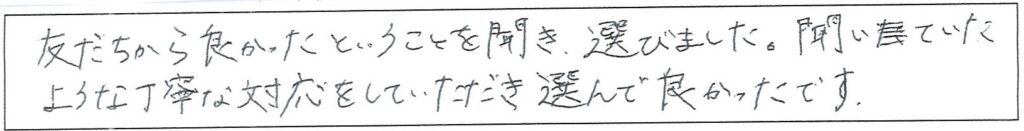 友だちから良かったということを聞き、選びました。聞いていた
ような丁寧な対応をしていただき選んで良かったです。